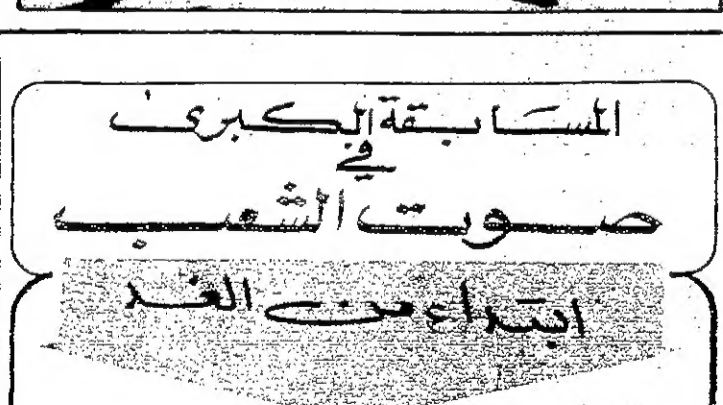 المسابقة الكبرى
في
صوت الشعب
ابتداء من الغد